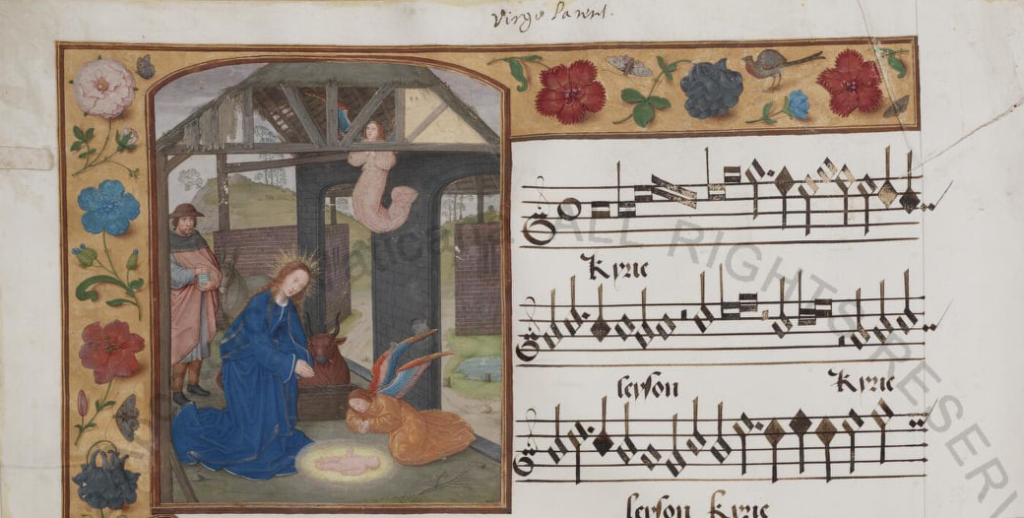 Virgo Parens.
Kyrie
leyson Kyrie
leyson Kyrie
ALL RIGHTS RESERV